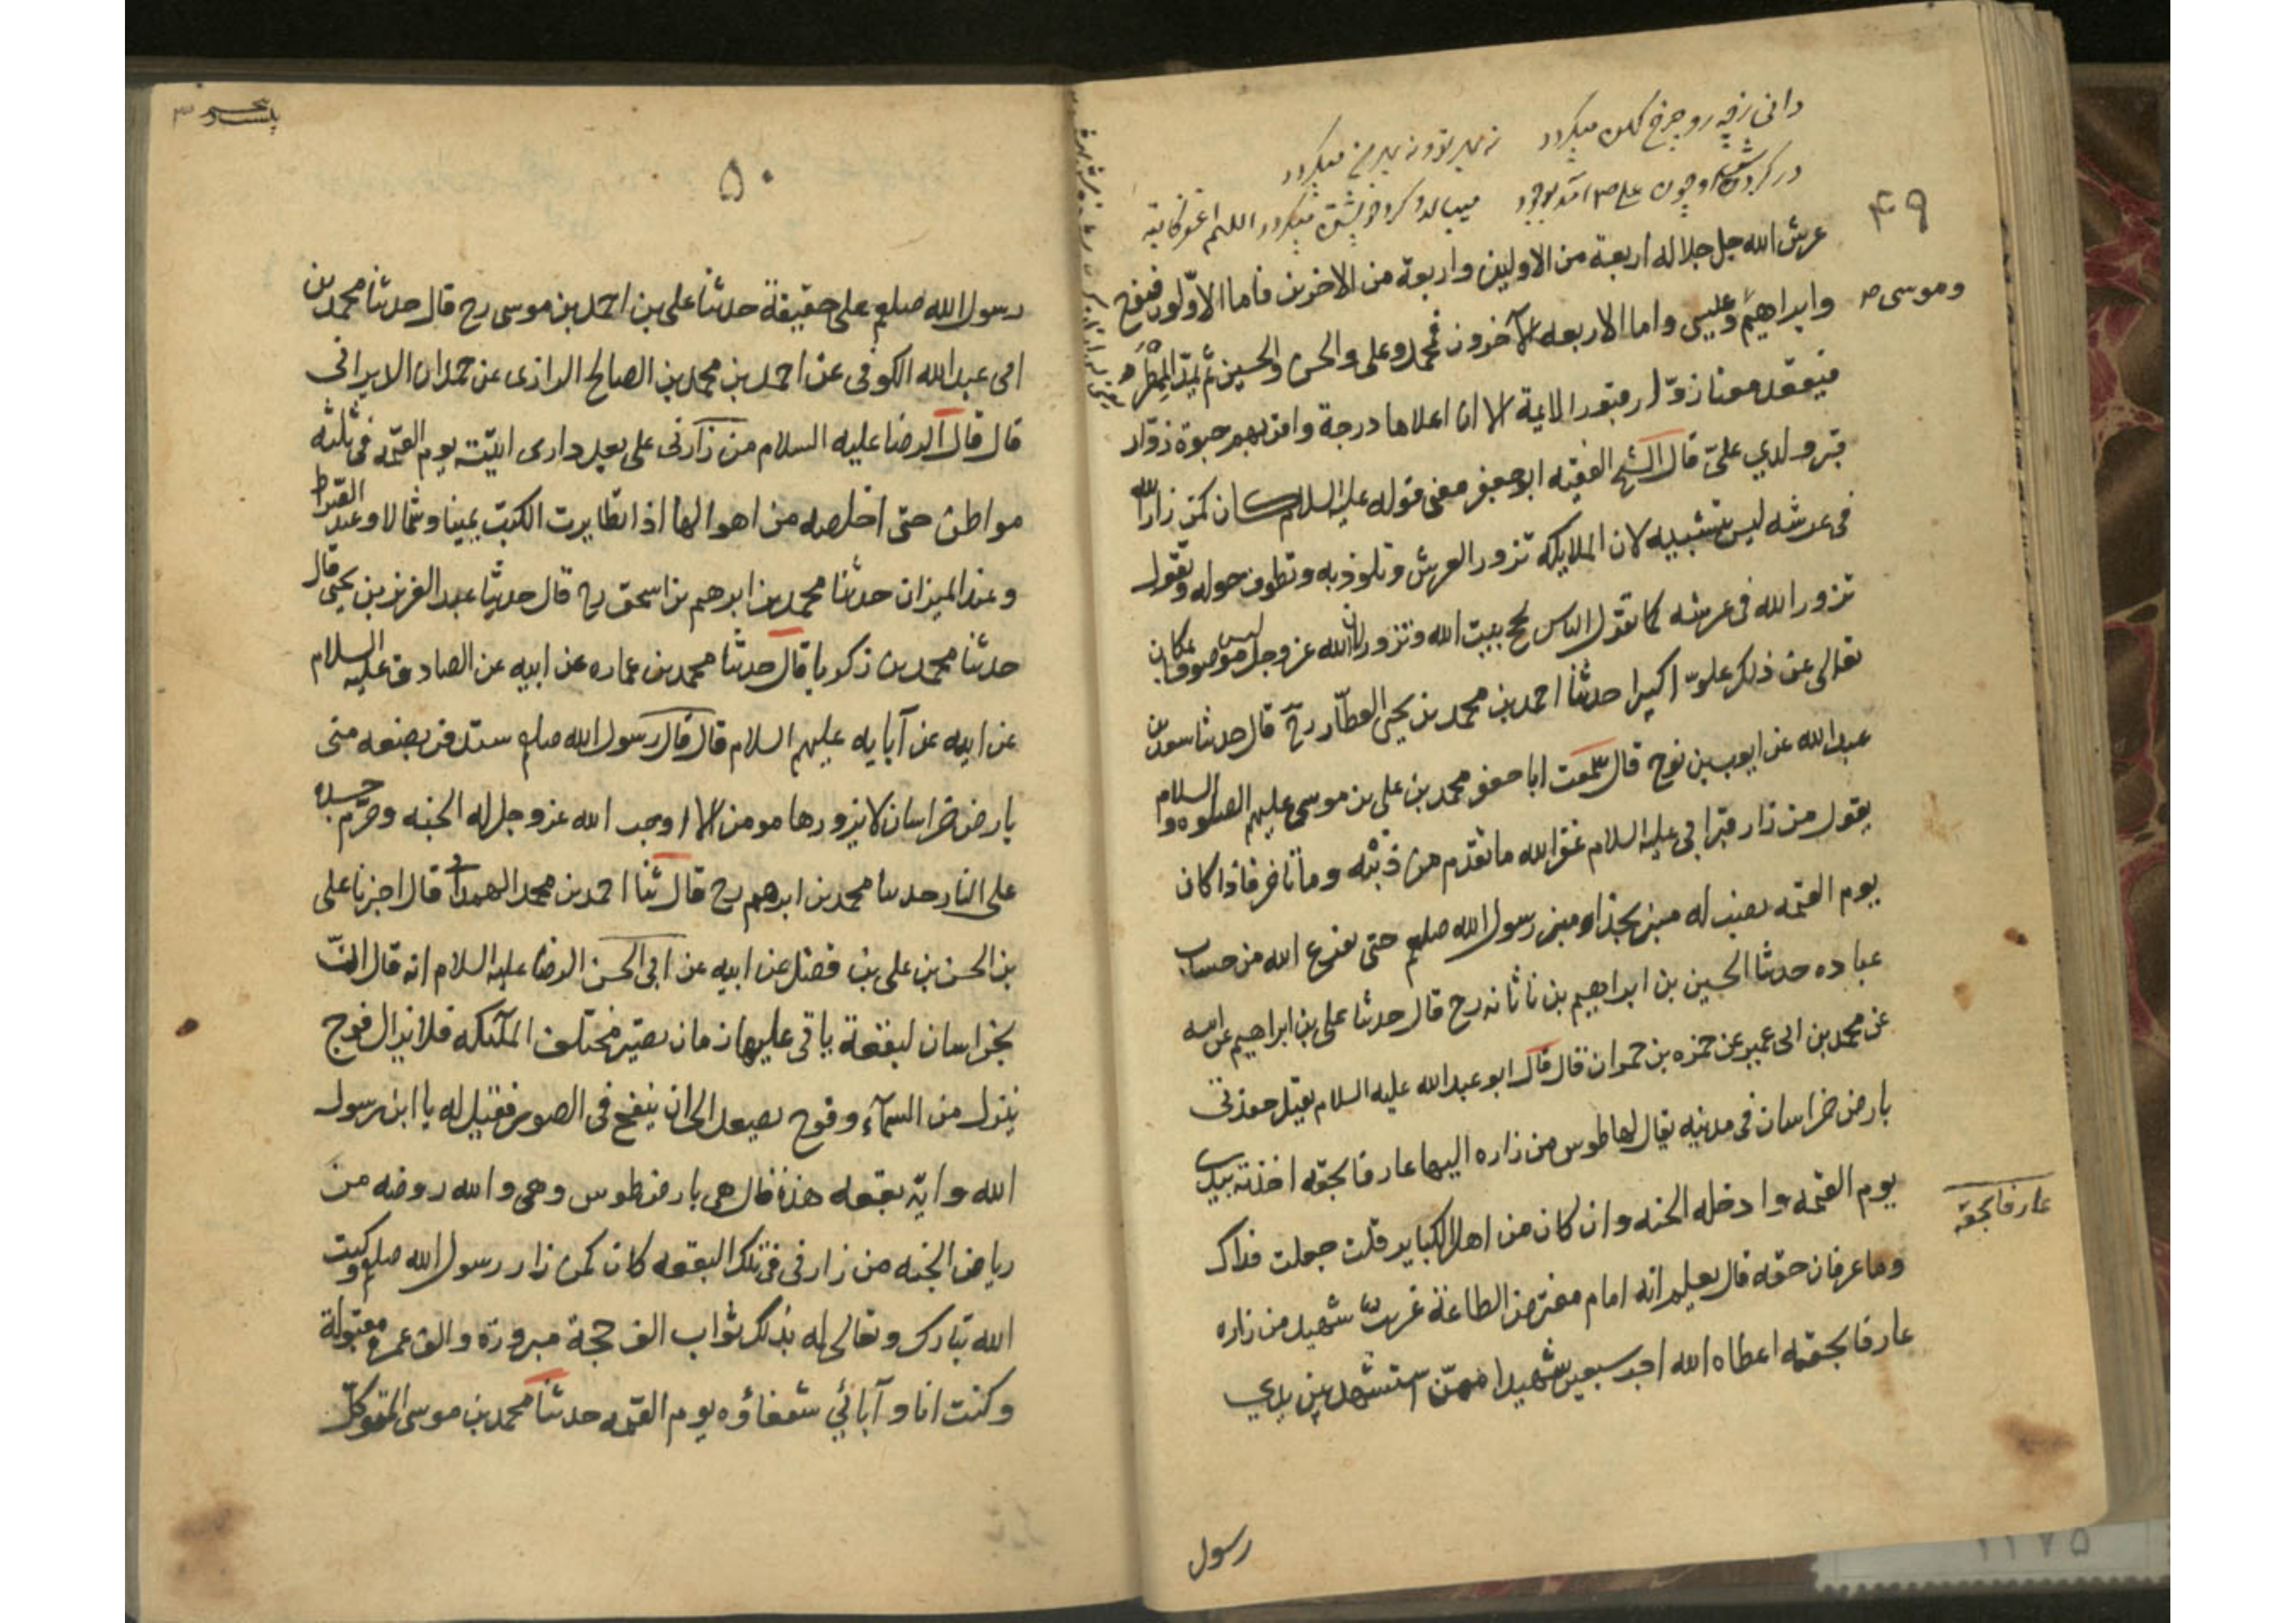 ۴۹
دانی ز چه رو چرخ کهن میگردد نه بهر تو و نه بهر من میگردد
در کردش او چون علی آمد بوجود میبالد و کرد خویشتن میکردد
عرش الله جل جلاله اربعة من الاولين واربعة من الاخرين فاما الاوّلون فنوح
وموسی
وابراهيم وعليسى واما الاربعه الآخرون فمحمد وعلى والحسن والحسين ثم يمدّ المِطْمَر
فيقعد معنا زوّار قبور الايمة الا ان اعلاها درجة واقربهم حبوة زوّار
قبر ولدي علىّ قال الشيخ الفقيه ابو جعفر معنى قوله عليه السلام كان كمن زار الله
فى عرشه ليس بتشبيه لان الملايكه تزور العرش وتلوذ به وتطوف حوله وتقول
تزور الله فى عرشه كما تقول الناس نحج بيت الله ونزور الله لان الله عز وجل ليس موصوفا بمكان
تعالى عن ذلك علوّا كبيرا حدثنا احمد بن محمد بن يحيى العطّار رح قال حدثنا سعد بن
عبد الله عن ايوب بن نوح قال سمعت ابا جعفر محمد بن على بن موسى عليهم الصلوه والسلام
يقول من زار قبر ابى عليه السلام غفر الله ما تقدم من ذنبه وما تاخر فاذا كان
يوم القيمه نصب له منبر بحذاء منبر رسول الله صلعم حتى يفرغ الله من حساب
عباده حدثنا الحسين بن ابراهيم بن ناتانه رح قال حدثنا على بن ابراهيم عن ابيه
عن محمد بن ابى عمير عن حمزه بن حمران قال قال ابو عبد الله عليه السلام يقتل حفدتى
بارض خراسان فى مدينه يقال لها طوس من زاره اليها عارفا بحقه اخذته بيدى
يوم القيمه وادخله الجنه وان كان من اهل الكباير قلت جعلت فداك
عارفا بحقه
وما عرفان حقه قال يعلم انه امام مفترض الطاعة غريب شهيد من زاره
عارفا بحقه اعطاه الله اجر سبعين شهيدا ممّن استشهد بين يدي
رسول
۵۰
رسول الله صلعم على حقيقة حدثنا على بن احمد بن موسى رح قال حدثنا محمد بن
ابى عبد الله الكوفى عن احمد بن محمد بن الصالح الرازى عن حمدان الايرانى
قال قال الرضا عليه السلام من زارنى على بعد دارى اتيته يوم القيمه فى ثلثه
مواطن حتى اخلصه من اهوالها اذا تطايرت الكتب يمينا وشمالا وعند الصراط
وعند الميزان حدثنا محمد بن ابرهيم بن اسحق رح قال حدثنا عبد العزيز بن يحيى قال
حدثنا محمد بن زكريا قال حدثنا محمد بن عماره عن ابيه عن الصادق عليه السلام
عن ابيه عن آبايه عليهم السلام قال قال رسول الله صلعم ستدفن بضعه منى
بارض خراسان لا يزورها مومن الا اوجب الله عز وجل له الجنه وحرّم جسده
على النار حدثنا محمد بن ابرهيم رح قال ثنا احمد بن محمد الهمدانى قال اخبرنا على
بن الحسن بن على بن فضل عن ابيه عن ابى الحسن الرضا عليه السلام انه قال انّ
بخراسان لبقعة ياتى عليها زمان تصير مختلف الملئكه فلا يزال فوج
ينزل من السمآء وفوج يصعد الى ان ينفخ فى الصور فقيل له يا ابن رسول
الله وايّه بقعه هذه قال هى بارض طوس وهى والله روضه من
رياض الجنه من زارنى فى تلك البقعه كان كمن زار رسول الله صلعم وكتب
الله تبارك وتعالى له بذلك ثواب الف حجة مبرورة والف عمره مقبولة
وكنت انا وآبائي شفعاؤه يوم القيمه حدثنا محمد بن موسى المتوكّل